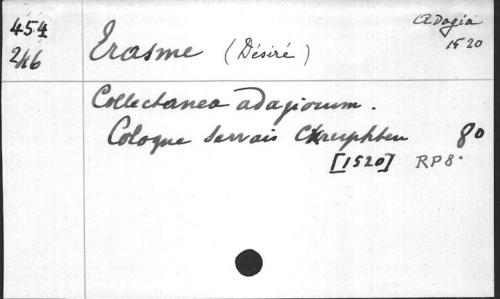 454
2/16
Erasme (Désiré)
Adagia
1520
Collectanea adagiorum.
Cologne Servais 80
[1520] RP8.